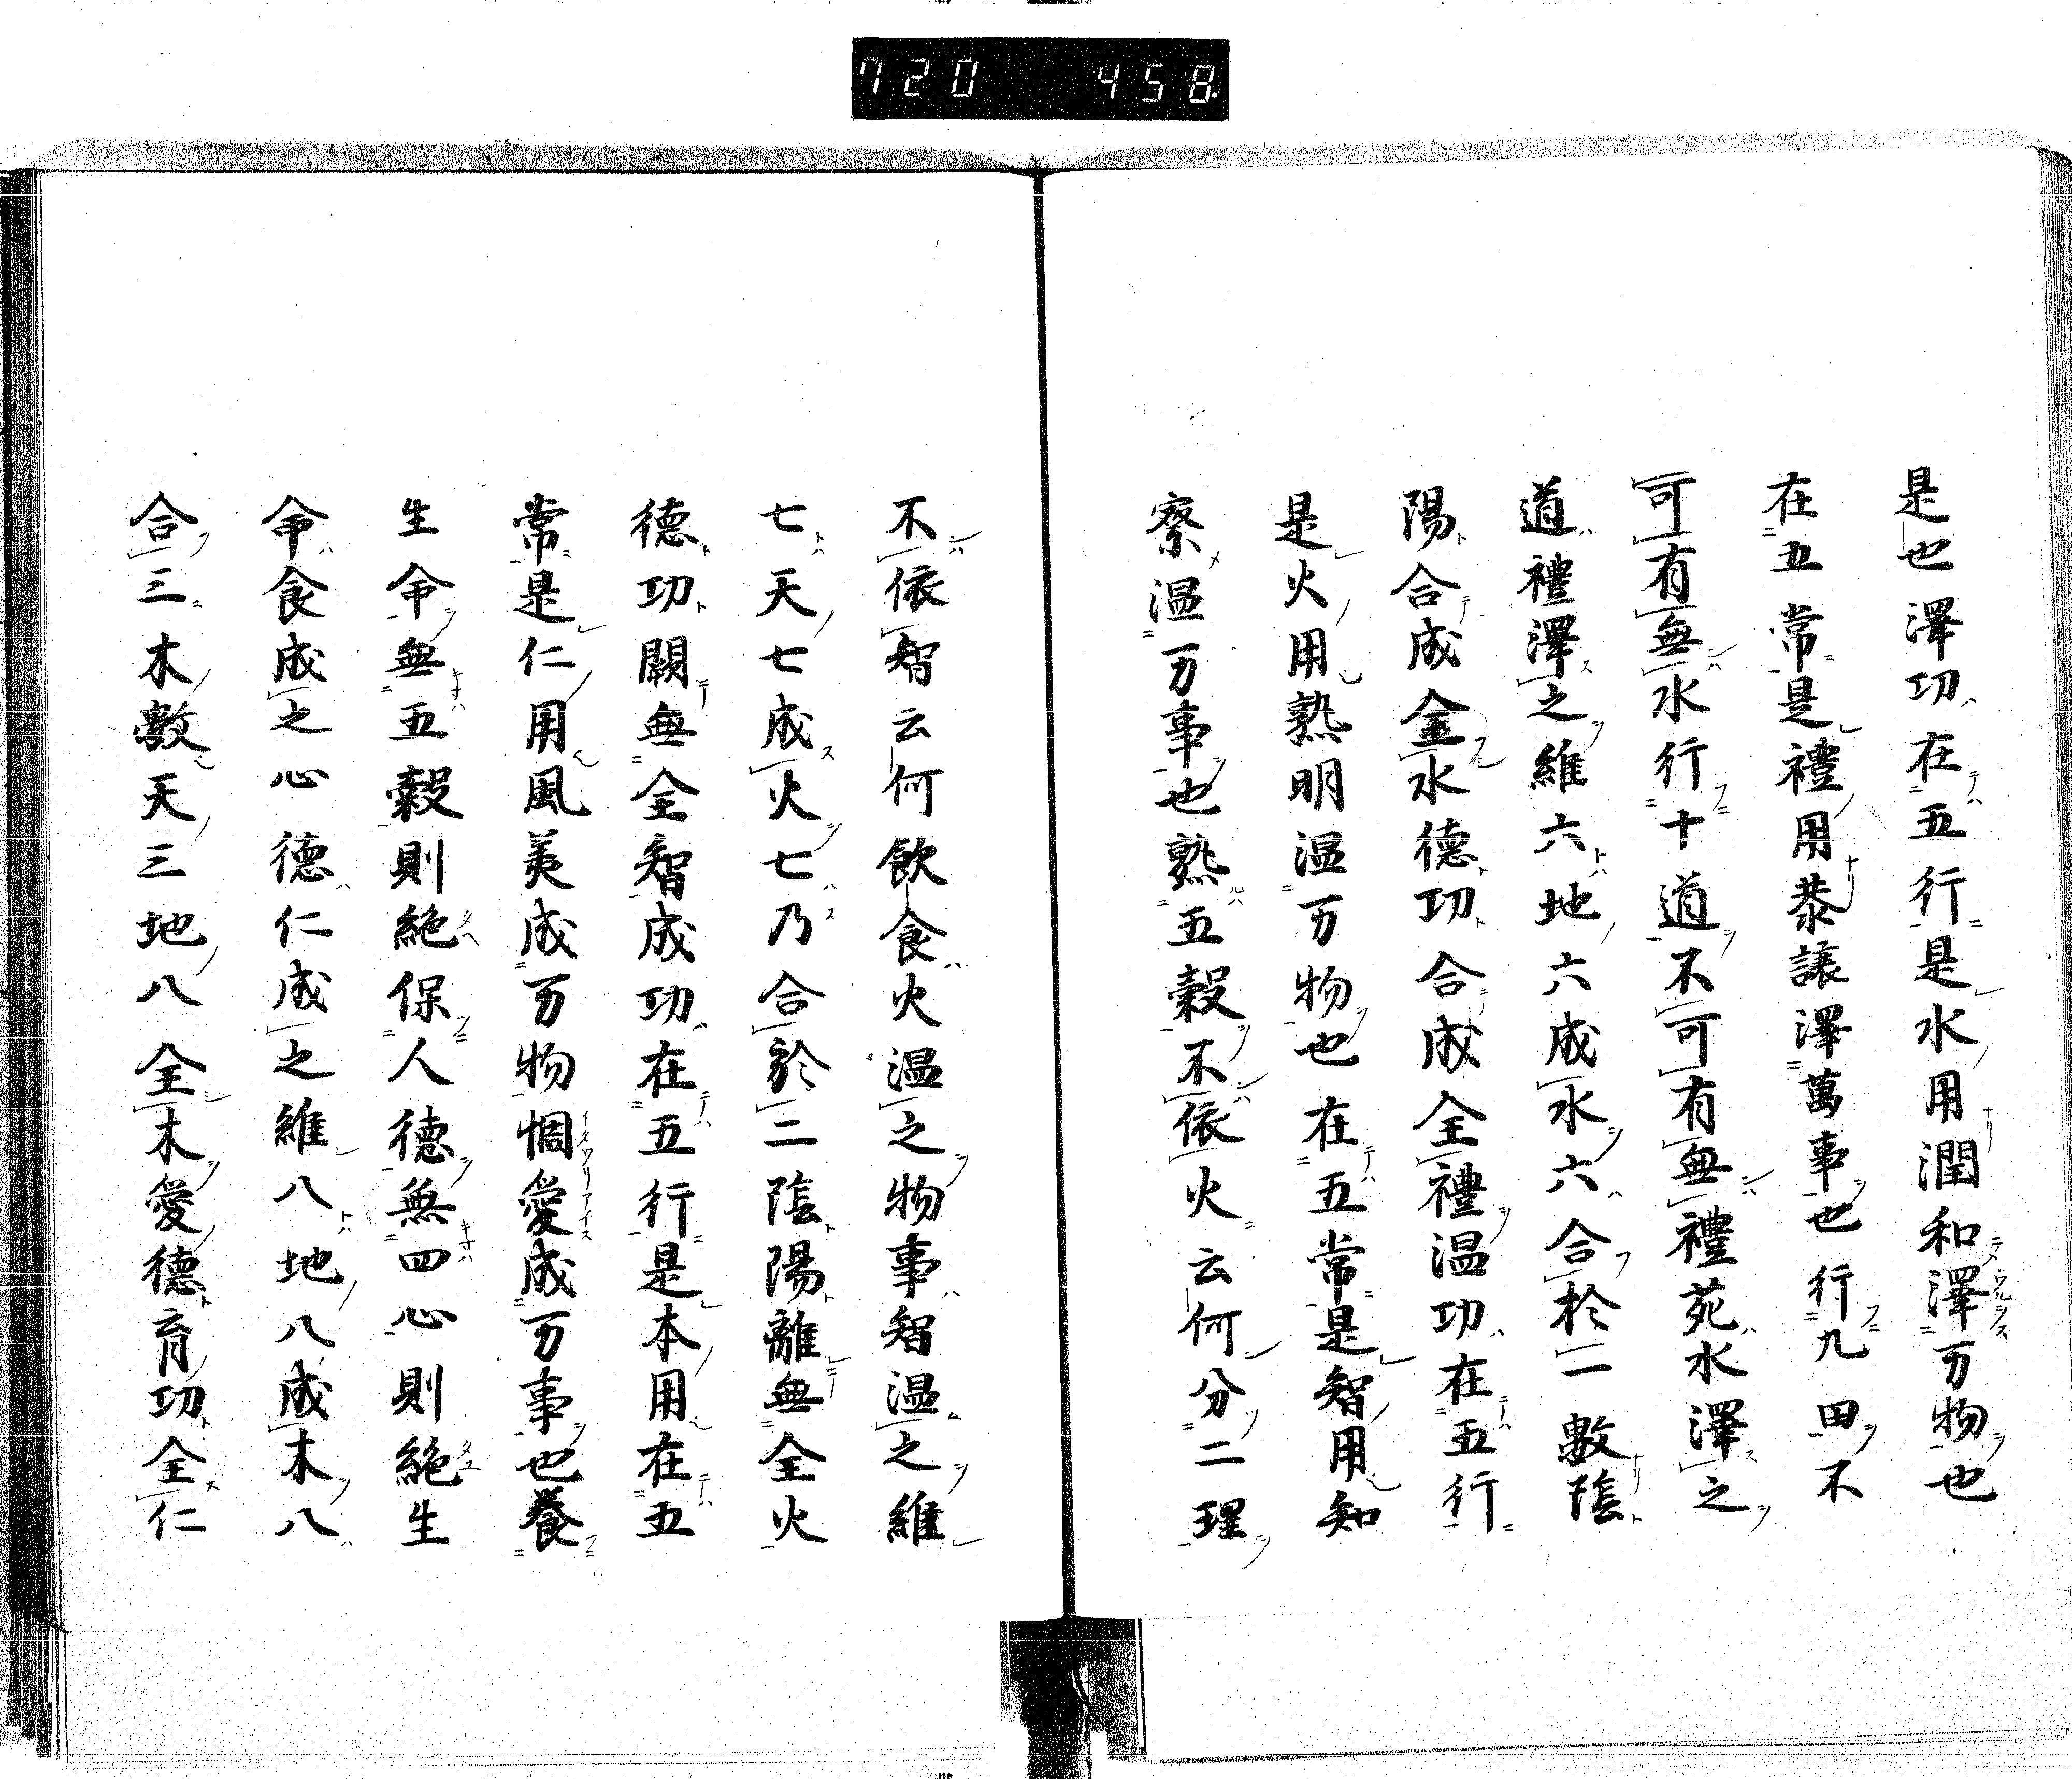 720 458.
是也澤功在五行是水用潤和澤万物也
在五常是禮用恭譲澤萬事也行九田不
可有無水行十道不可有無禮苑水澤之
道禮澤之維六地六成水六合於一數陰
陽合成全水德功合成全禮温功在五行
是火用熟明温万物也在五常是智用知
察温万事也熟五穀不依火云何分二理
不依智云何飲食火温之物事智温之維
七天七成火七乃合於二陰陽離無全火
德功闕無全智成功在五行是木用在五
常是仁用風美成万物惆愛成万事也養
生命無五穀則絶保人德無四心則絶生
命食成之心德仁成之維八地八成木八
合三木數天三地八全木愛德育功全仁